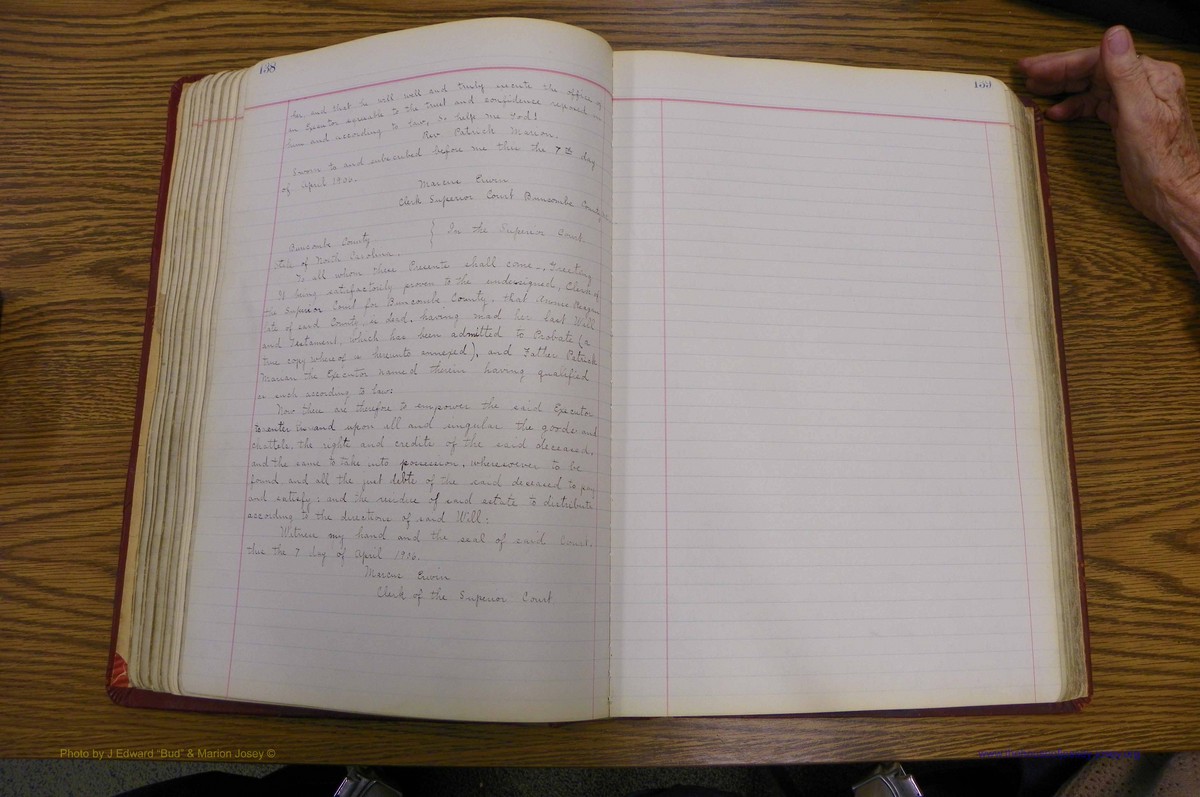 138
her, and that he will well and truly execute the office of
an Executor agreeable to the trust and confidence reposed in
him and according to law, So help me God!
Rev Patrick Marion.
Sworn to and subscribed before me this the 7th day
of April 1906.
Marcus Erwin
Clerk Superior Court Buncombe County
Buncombe County } In the Superior Court.
State of North Carolina.
To all whom these Presents shall come, Greeting
It being satisfactorily proven to the undersigned, Clerk of
the Superior Court for Buncombe County, that Annie Reagan
late of said County is dead, having mad her Last Will
and Testament, which has been admitted to Probate (a
true copy whereof is hereunto annexed), and Father Patrick
Marian the Executor named therein having qualified
as such according to law:
Now these are therefore to empower the said Executor
to enter in and upon all and singular the goods and
chattels, the rights and credits of the said deceased,
and the same to take into possession, wheresoever to be
found, and all the just debts of the said deceased to pay
and satisfy; and the residue of said estate to distribute
according to the directions of said Will:
Witness my hand and the seal of said Court,
this the 7 day of April 1906.
Marcus Erwin
Clerk of the Superior Court
139
Photo by J Edward "Bud" & Marion Josey ©